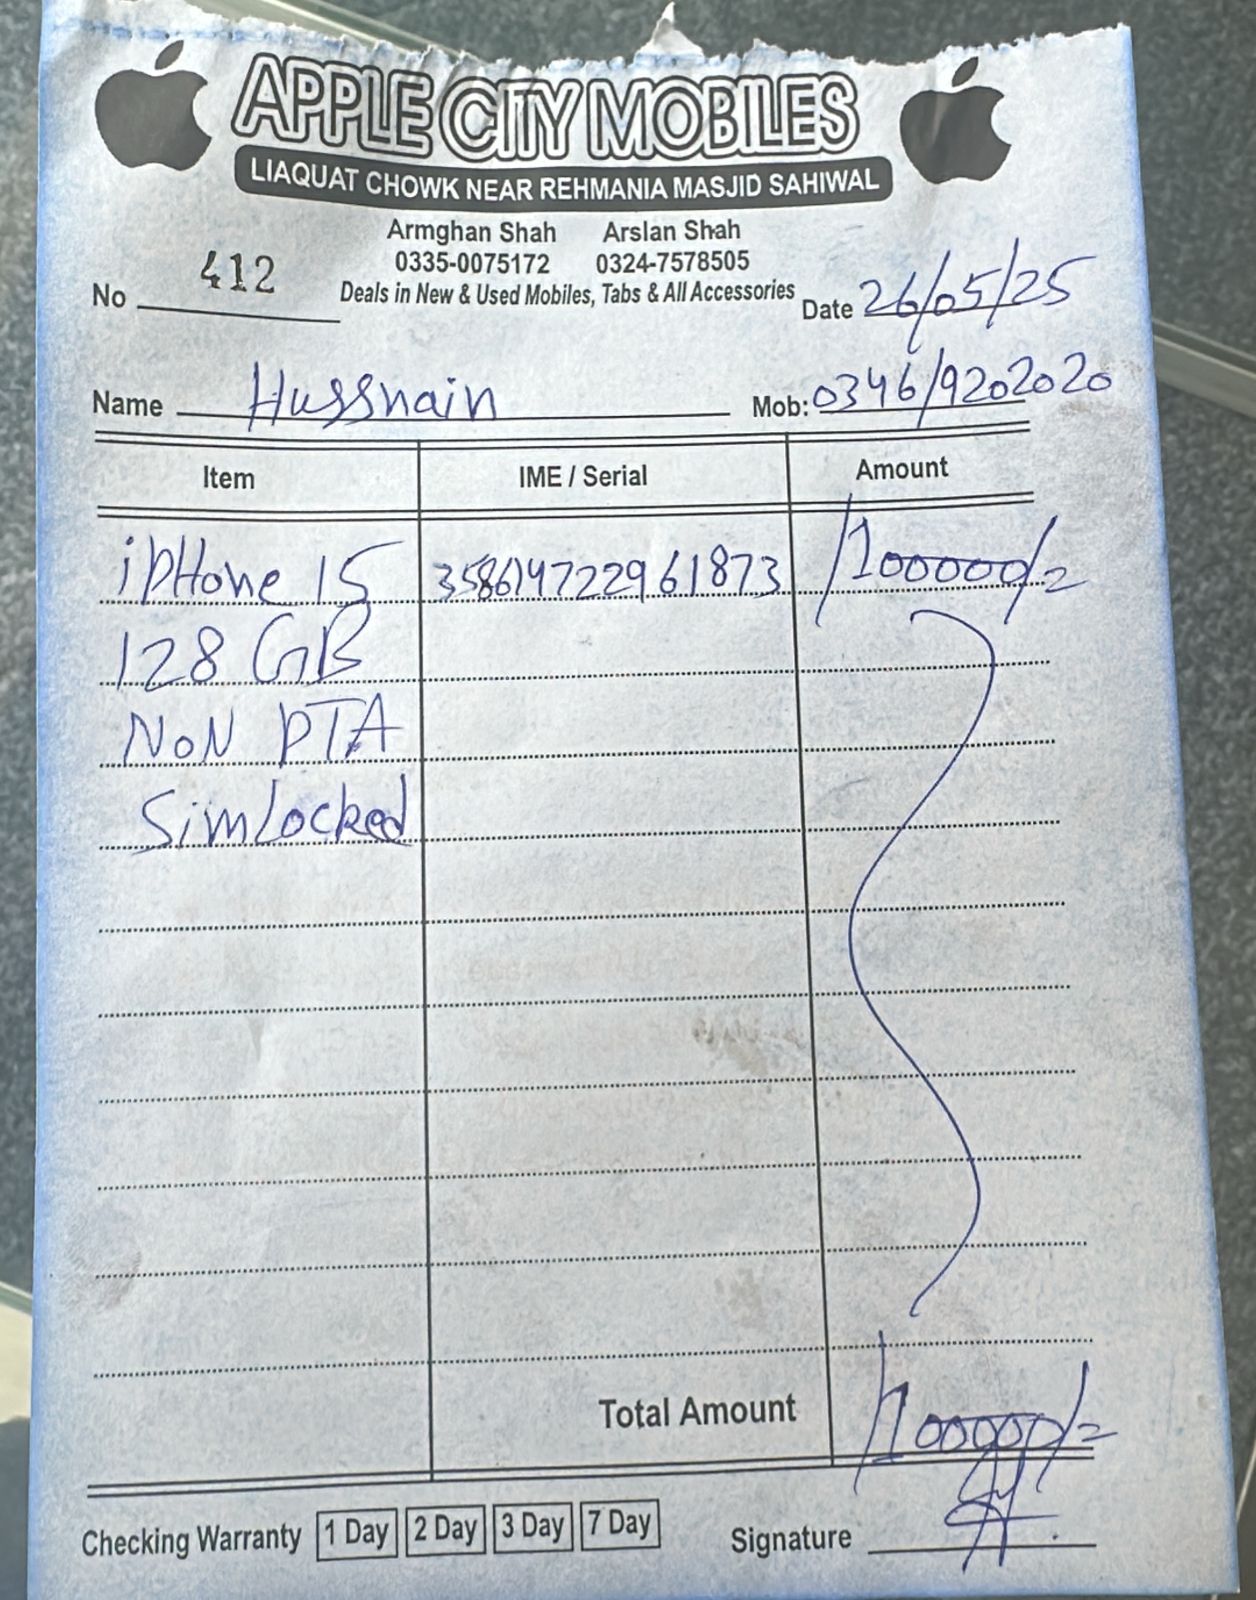 APPLE CITY MOBILES
LIAQUAT CHOWK NEAR REHMANIA MASJID SAHIWAL
Armghan Shah Arslan Shah
0335-0075172 0324-7578505
Deals in New & Used Mobiles, Tabs & All Accessories
No 412 Date 26/05/25
Name Hussnain Mob: 0346/9202020
Item IME / Serial Amount
ipHone 15 358614722961873 /100000/=
128 GB
NoN PTA
SimLocked
Total Amount /100000/=
Checking Warranty 1 Day 2 Day 3 Day 7 Day Signature